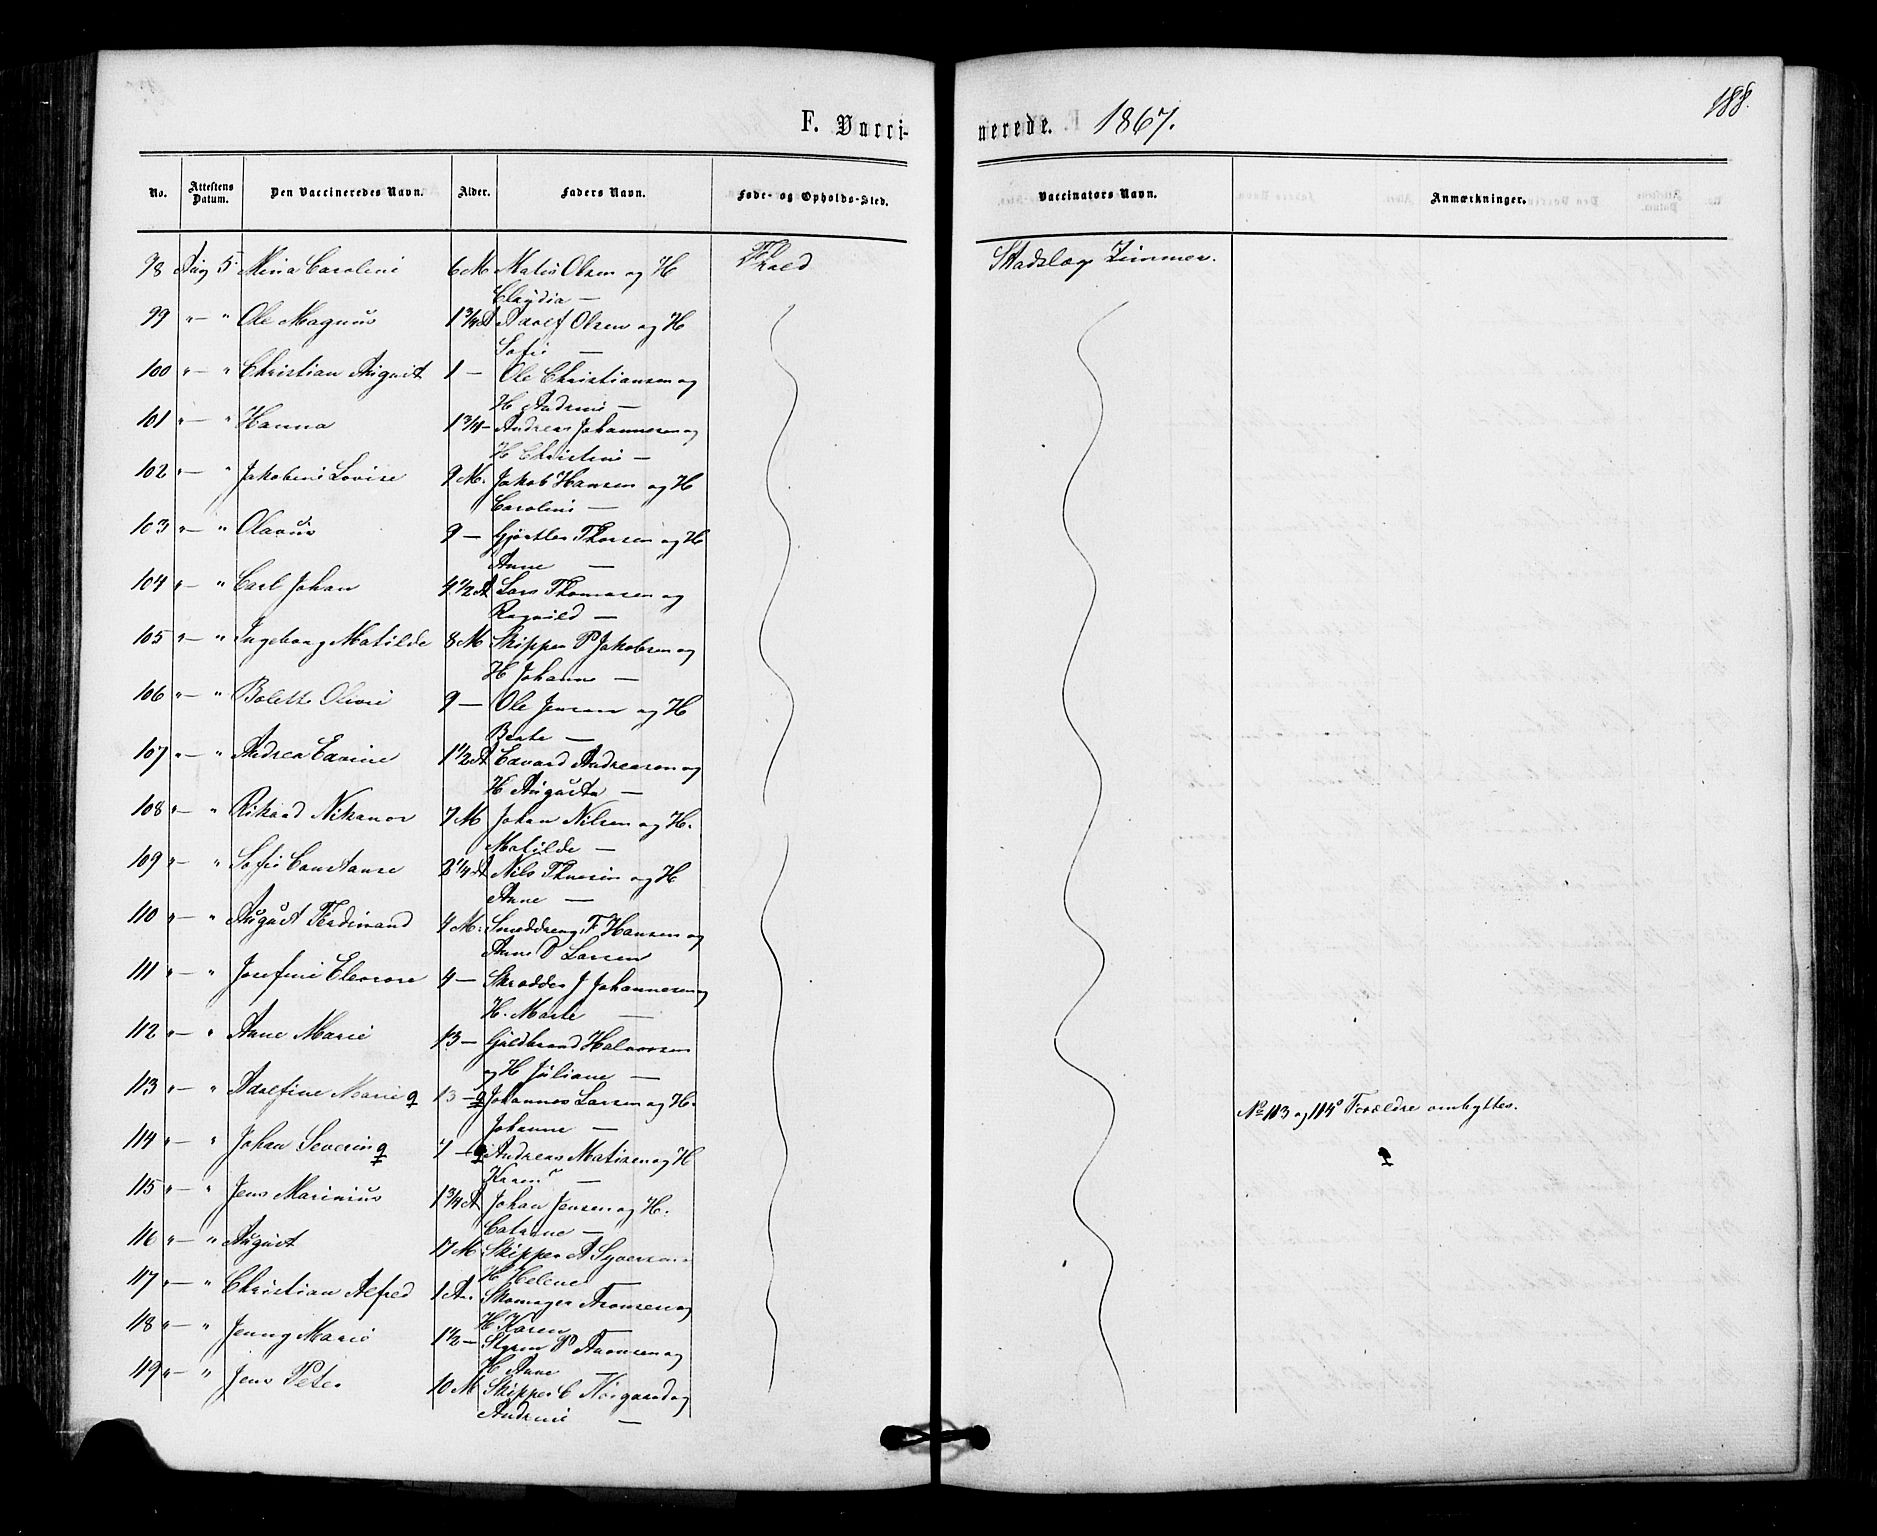 188.
F. Vacci-
nerede. 1867.
No. Attestens Datum. Den Vaccineredes Navn. Alder. Faders Navn. Føde- og Opholds-Sted. Vaccinators Navn. Anmærkninger.
98 Aug 5 Mina Caroline 6 M Matis Olsen og H Stadslæge Zimmer.
Claydia —
99 " — " Ole Magnus 1 3/4 A Adolf Olsen og H
Sofie —
100 " — " Christian August 1 — Ole Christiansen og
H Andrine —
101 " — " Hanna 1 3/4 — Andreas Johannesen og
H Christine —
102 " — " Jakobine Lovise 9 M. Jakob Hansen og H
Caroline —
103 " — " Olavus 9 — Thorsen og H
Anne —
104 " — " Carl Johan 4 1/2 A Lars Thomasen og
Ragnild —
105 " — " Ingeborg Matilde 8 M Skipper P Jakobsen og
H Johanne —
106 " — " Bolette Olivie 9 — Ole Jensen og H
Beate —
107 " — " Andrea Edvine 1 1/2 A Edvard Andreasen og
H Augusta —
108 " — " Rikard Nikanor 7 M Johan Nilsen og H.
Matilde —
109 " — " Sofie Constanse 2 1/4 A Nils Thuesen og H
Anne —
110 " — " August Ferdinand 4 M. Smeddreng F Hansen og
Anne P Larsen
111 " — " Josefine Eleonore 4 — Skrædder J Johannesen og
H. Marte —
112 " — " Anne Marie 13 — Guldbrand Halvorsen
og H Juliane —
113 " — " Adolfine Marie 13 — Johannes Larsen og H.
Johanne —
No 113 og 114s Forældre ombyttes.
114 " — " Johan Severin 7 — Andreas Matisen og H
Karen —
115 " — " Jens Marinius 1 3/4 A Johan Jensen og H.
Catrine —
116 " — " August 17 M. Skipper A Syversen
H Helene —
117 " — " Christian Alfred 1 A. Skomager Aronsen og
H Karen —
118 " — " Jenny Marie 1 1/2 — Styrm P Aronsen og
H Anne —
119 " — " Jens Peter 10 M Skipper C Norgaard og
Andrine —